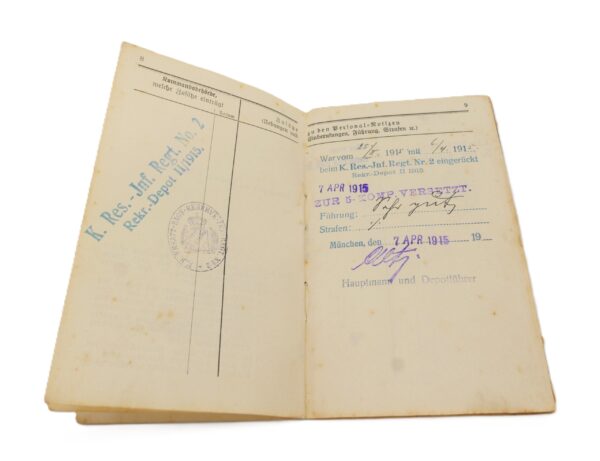 8
Kommandobehörde,
welche Zusätze einträgt
Datum
K. Res.-Inf. Regt. No. 2
Rekr.-Depot II/1915.
9
zu den Personal-Notizen
Führung, Strafen u.)
War vom 191 mit 191
beim K. Res.-Inf. Regt. Nr. 2 eingerückt
Rekr.-Depot II 1915
7 APR 1915
ZUR 5. KOMP. VERSETZT.
Führung: Sehr gut
Strafen:
München, den 7 APR 1915 19
Hauptmann und Depotführer